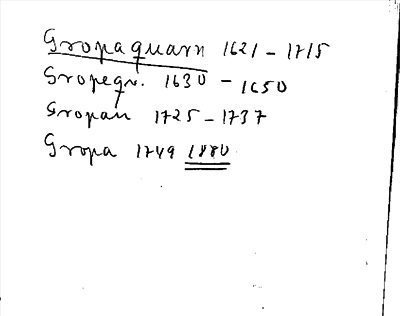 Gropaquarn 1621 – 1715
Gropeqv. 1630 – 1650
Gropan 1725 – 1737
Gropa 1749 1880